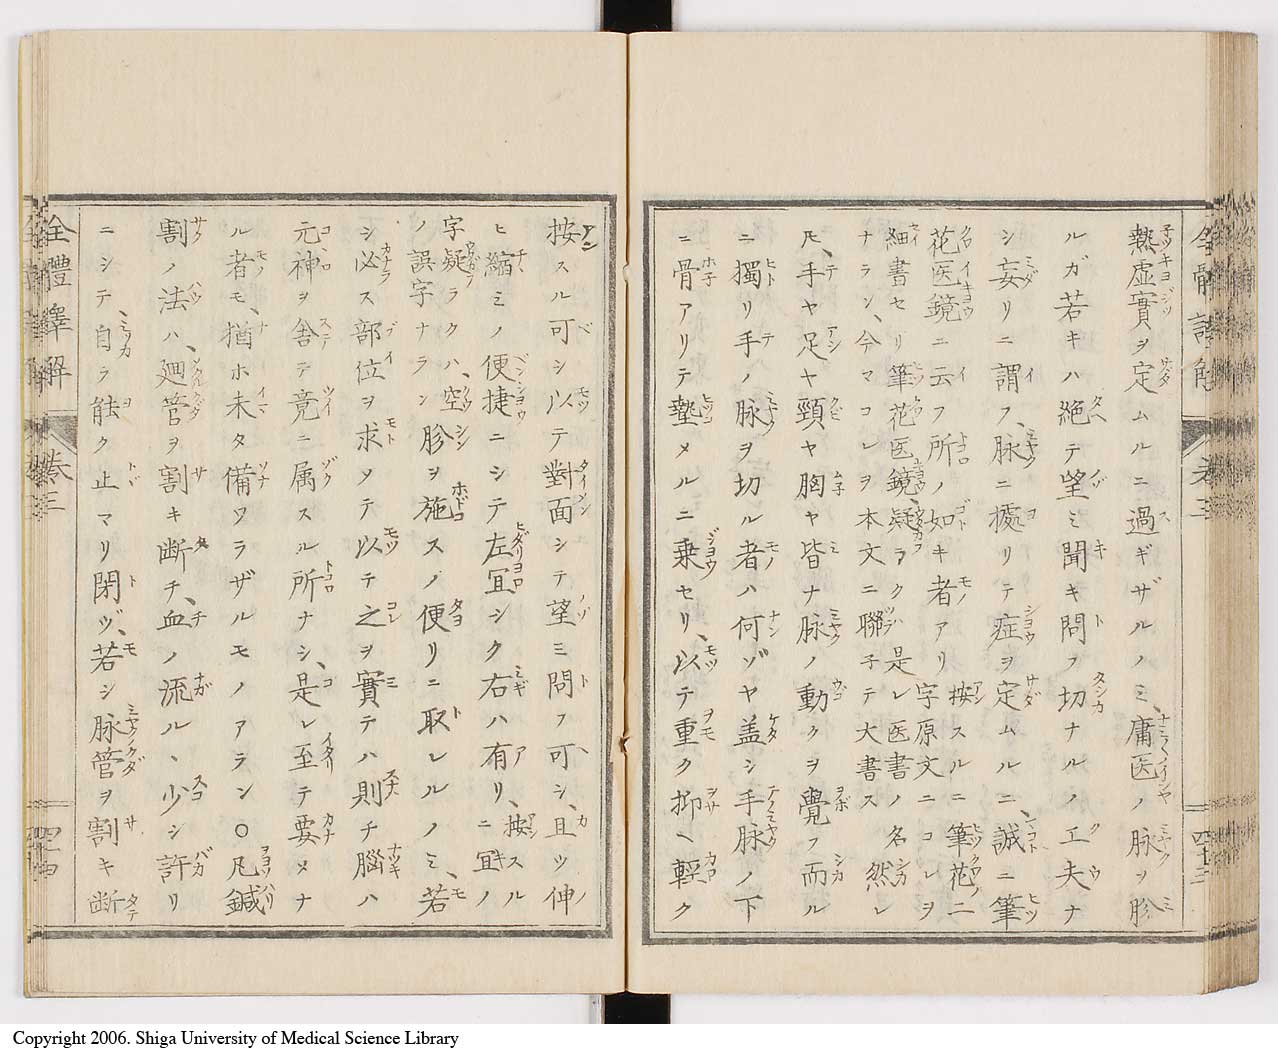 熱虚實ヲ定ムルニ過ギザルノミ、庸医ノ脉ヲ胗
ルガ若キハ絶テ望ミ聞キ問フ切ナルノ工夫ナ
シ妄リニ謂フ、脉ニ據リテ症ヲ定ムルニ、誠ニ筆
花医鏡ニ云フ所ノ如キ者アリ
按スルニ筆花ノ二
字原文ニコレヲ
細書セリ筆花医鏡、疑ラクハ是レ医書ノ名然レ
ナラン、今マコレヲ本文ニ聯子テ大書ス
𪜈、手ヤ足ヤ頸ヤ胸ヤ皆ナ脉ノ動クヲ覺フ而ル
ニ獨リ手ノ脉ヲ切ル者ハ何ゾヤ盖シ手脉ノ下
ニ骨アリテ墊メルニ乗セリ、以テ重ク抑ヘ輕ク
全體譯解
卷三
四十三
按スル可シ以テ對面シテ望ミ問フ可シ、且ツ伸
ヒ縮ミノ便捷ニシテ左冝シク右ハ有リ、
按スル
ニ冝ノ
字疑ラクハ、空
ノ誤字ナラン
胗ヲ施スノ便リニ取レルノミ、若
シ必ス部位ヲ求メテ以テ之ヲ實テハ則チ腦ハ
元神ヲ舎テ竟ニ属スル所ナシ、是レ至テ要メナ
ル者モ、猶ホ未タ備ワラザルモノアラン○凡鍼
割ノ法ハ、廻管ヲ割キ断チ、血ノ流ル、少シ許リ
ニシテ自ラ能ク止マリ閉ヅ、若シ脉管ヲ割キ断
全體譯解
卷三
四十四
Copyright 2006. Shiga University of Medical Science Library